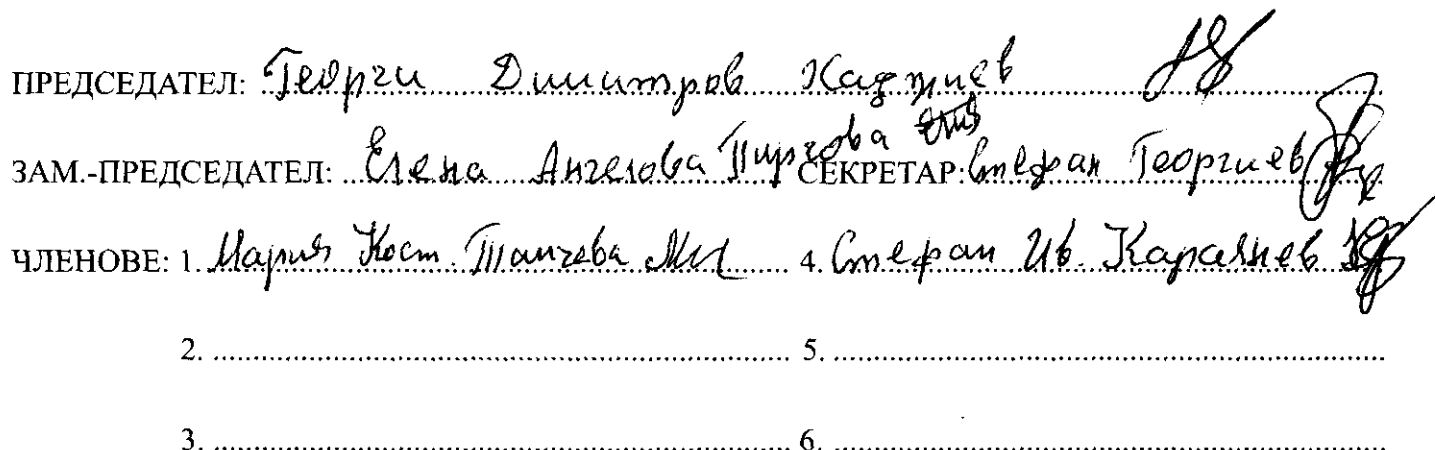 ПРЕДСЕДАТЕЛ: Георги Димитров Хаджиев
ЗАМ.-ПРЕДСЕДАТЕЛ: Елена Ангелова Пиргова СЕКРЕТАР: Стефан Георгиев
ЧЛЕНОВЕ: 1. Мария Кост. Танчева 4. Стефан Ив. Караянев
2. 5.
3. 6.